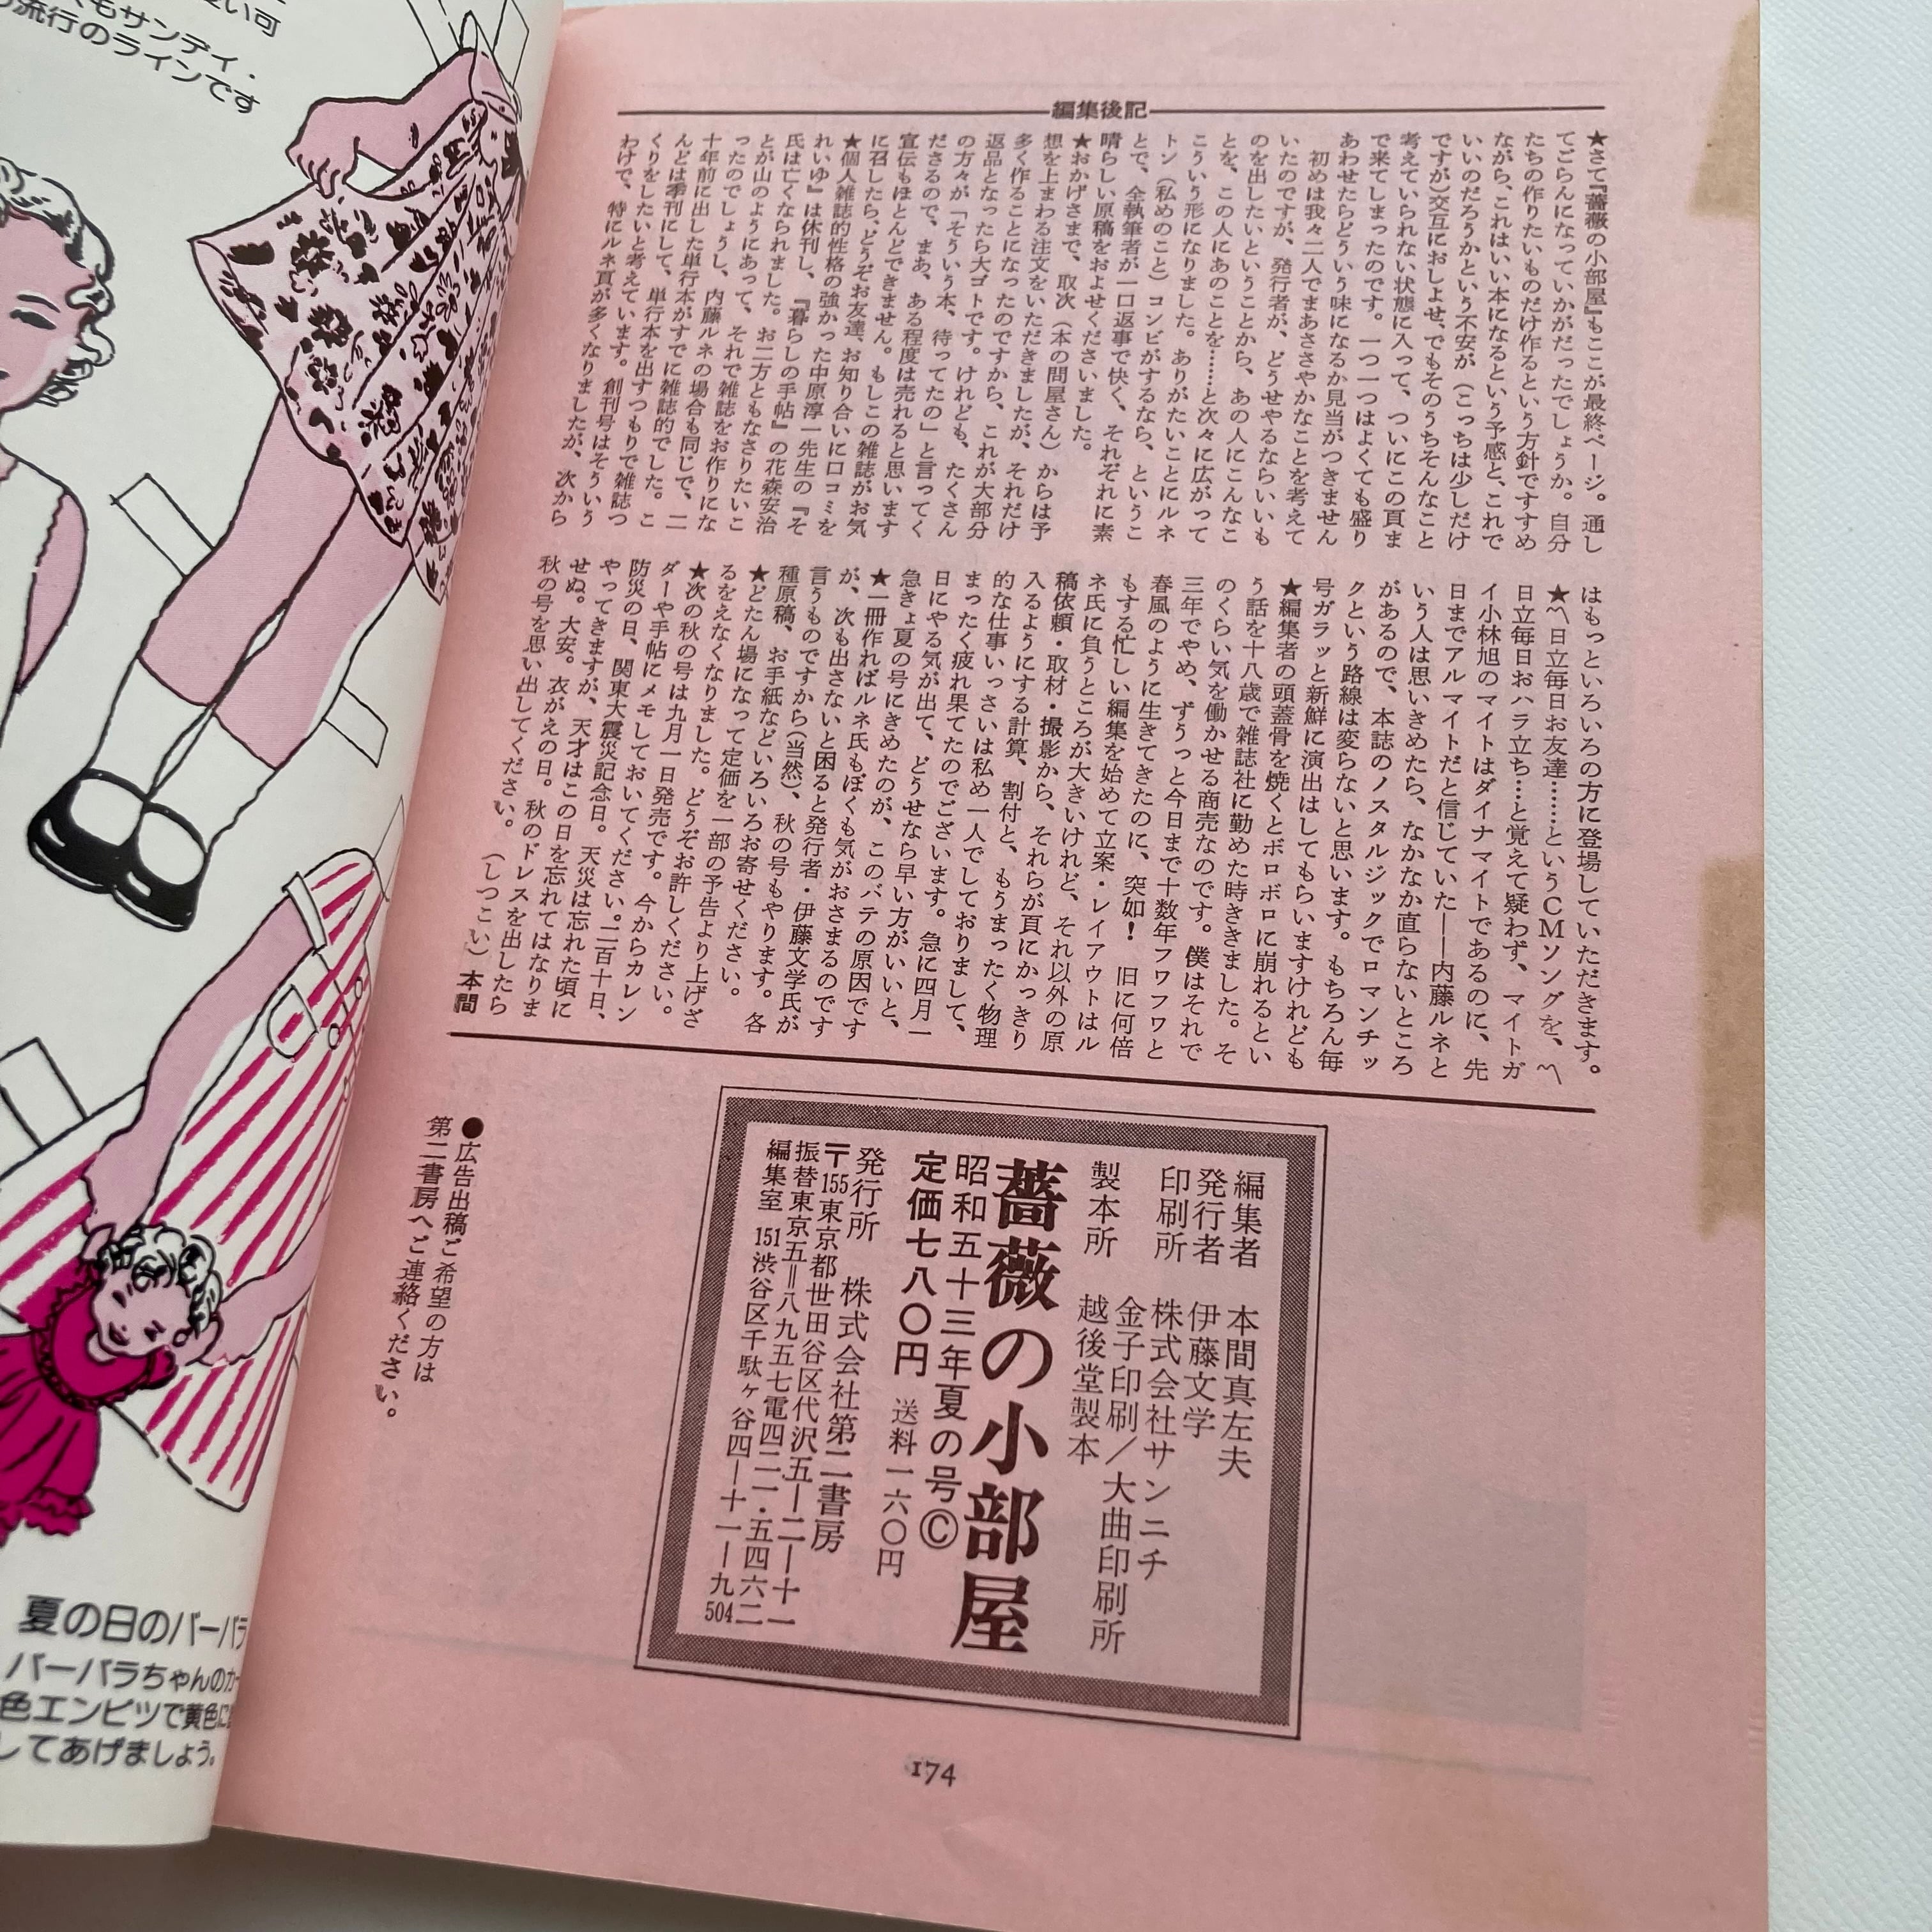 編集後記
★さて『薔薇の小部屋』もここが最終ページ。通し
てごらんになっていかがだったでしょうか。自分
たちの作りたいものだけ作るという方針ですすめ
ながら、これはいい本になるという予感と、これで
いいのだろうかという不安が（こっちは少しだけ
ですが）交互におしよせ、でもそのうちそんなこと
考えていられない状態に入って、ついにこの頁ま
で来てしまったのです。一つ一つはよくても盛り
あわせたらどういう味になるか見当がつきません
　初めは我々二人でまあささやかなことを考えて
いたのですが、発行者が、どうせやるならいいも
のを出したいということから、あの人にこんなこ
とを、この人にあのことを……と次々に広がって
こういう形になりました。ありがたいことにルネ
トン（私めのこと）コンビがするなら、というこ
とで、全執筆者が一口返事で快く、それぞれに素
晴らしい原稿をおよせくださいました。
★おかげさまで、取次（本の問屋さん）からは予
想を上まわる注文をいただきましたが、それだけ
多く作ることになったのですから、これが大部分
返品となったら大ゴトです。けれども、たくさん
の方々が「そういう本、待ってたの」と言ってく
ださるので、まあ、ある程度は売れると思います
宣伝もほとんどできません。もしこの雑誌がお気
に召したら、どうぞお友達、お知り合いに口コミを
★個人雑誌的性格の強かった中原淳一先生の『そ
れいゆ』は休刊し、『暮らしの手帖』の花森安治
氏は亡くなられました。お二方ともなさりたいこ
とが山のようにあって、それで雑誌をお作りにな
ったのでしょうし、内藤ルネの場合も同じで、二
十年前に出した単行本がすでに雑誌的でした。こ
んどは季刊にして、単行本を出すつもりで雑誌つ
くりをしたいと考えています。創刊号はそういう
わけで、特にルネ頁が多くなりましたが、次から
はもっといろいろの方に登場していただきます。
★〽日立毎日お友達……というCMソングを、〽
日立毎日おハラ立ち…と覚えて疑わず、マイトガ
イ小林旭のマイトはダイナマイトであるのに、先
日までアルマイトだと信じていた――内藤ルネと
いう人は思いきめたら、なかなか直らないところ
があるので、本誌のノスタルジックでロマンチッ
クという路線は変らないと思います。もちろん毎
号ガラッと新鮮に演出はしてもらいますけれども
★編集者の頭蓋骨を焼くとボロボロに崩れるとい
う話を十八歳で雑誌社に勤めた時ききました。そ
のくらい気を働かせる商売なのです。僕はそれで
三年でやめ、ずうっと今日まで十数年フワフワと
春風のように生きてきたのに、突如！　旧に何倍
もする忙しい編集を始めて立案・レイアウトはル
ネ氏に負うところが大きいけれど、それ以外の原
稿依頼・取材・撮影から、それらが頁にかっきり
入るようにする計算、割付と、もうまったく物理
的な仕事いっさいは私め一人でしておりまして、
まったく疲れ果てたのでございます。急に四月一
日にやる気が出て、どうせなら早い方がいいと、
急きょ夏の号にきめたのが、このバテの原因です
★一冊作ればルネ氏もぼくも気がおさまるのです
が、次も出さないと困ると発行者・伊藤文学氏が
言うものですから（当然）、秋の号もやります。各
種原稿、お手紙などいろいろお寄せください。
★どたん場になって定価を一部の予告より上げざ
るをえなくなりました。どうぞお許しください。
★次の秋の号は九月一日発売です。今からカレン
ダーや手帖にメモしておいてください。二百十日、
防災の日、関東大震災記念日。天災は忘れた頃に
やってきますが、天才はこの日を忘れてはなりま
せぬ。大安。衣がえの日。秋のドレスを出したら
秋の号を思い出してください。（しつこい）本間
編集者　本間真左夫
発行者　伊藤文学
印刷所　株式会社サンニチ
金子印刷／大曲印刷所
製本所　越後堂製本
薔薇の小部屋
昭和五十三年夏の号©
定価七八〇円　送料一六〇円
発行所　株式会社第二書房
〒155東京都世田谷区代沢五―二―十一
振替東京五＝八九五七電四二一・五四六二
編集室　151渋谷区千駄ヶ谷四―十一―九504
●広告出稿ご希望の方は
第二書房へご連絡ください。
174
い可
もサンディ・
流行のラインです
夏の日のバーバラ
バーバラちゃんの
色エンピツで黄色に
してあげましょう。